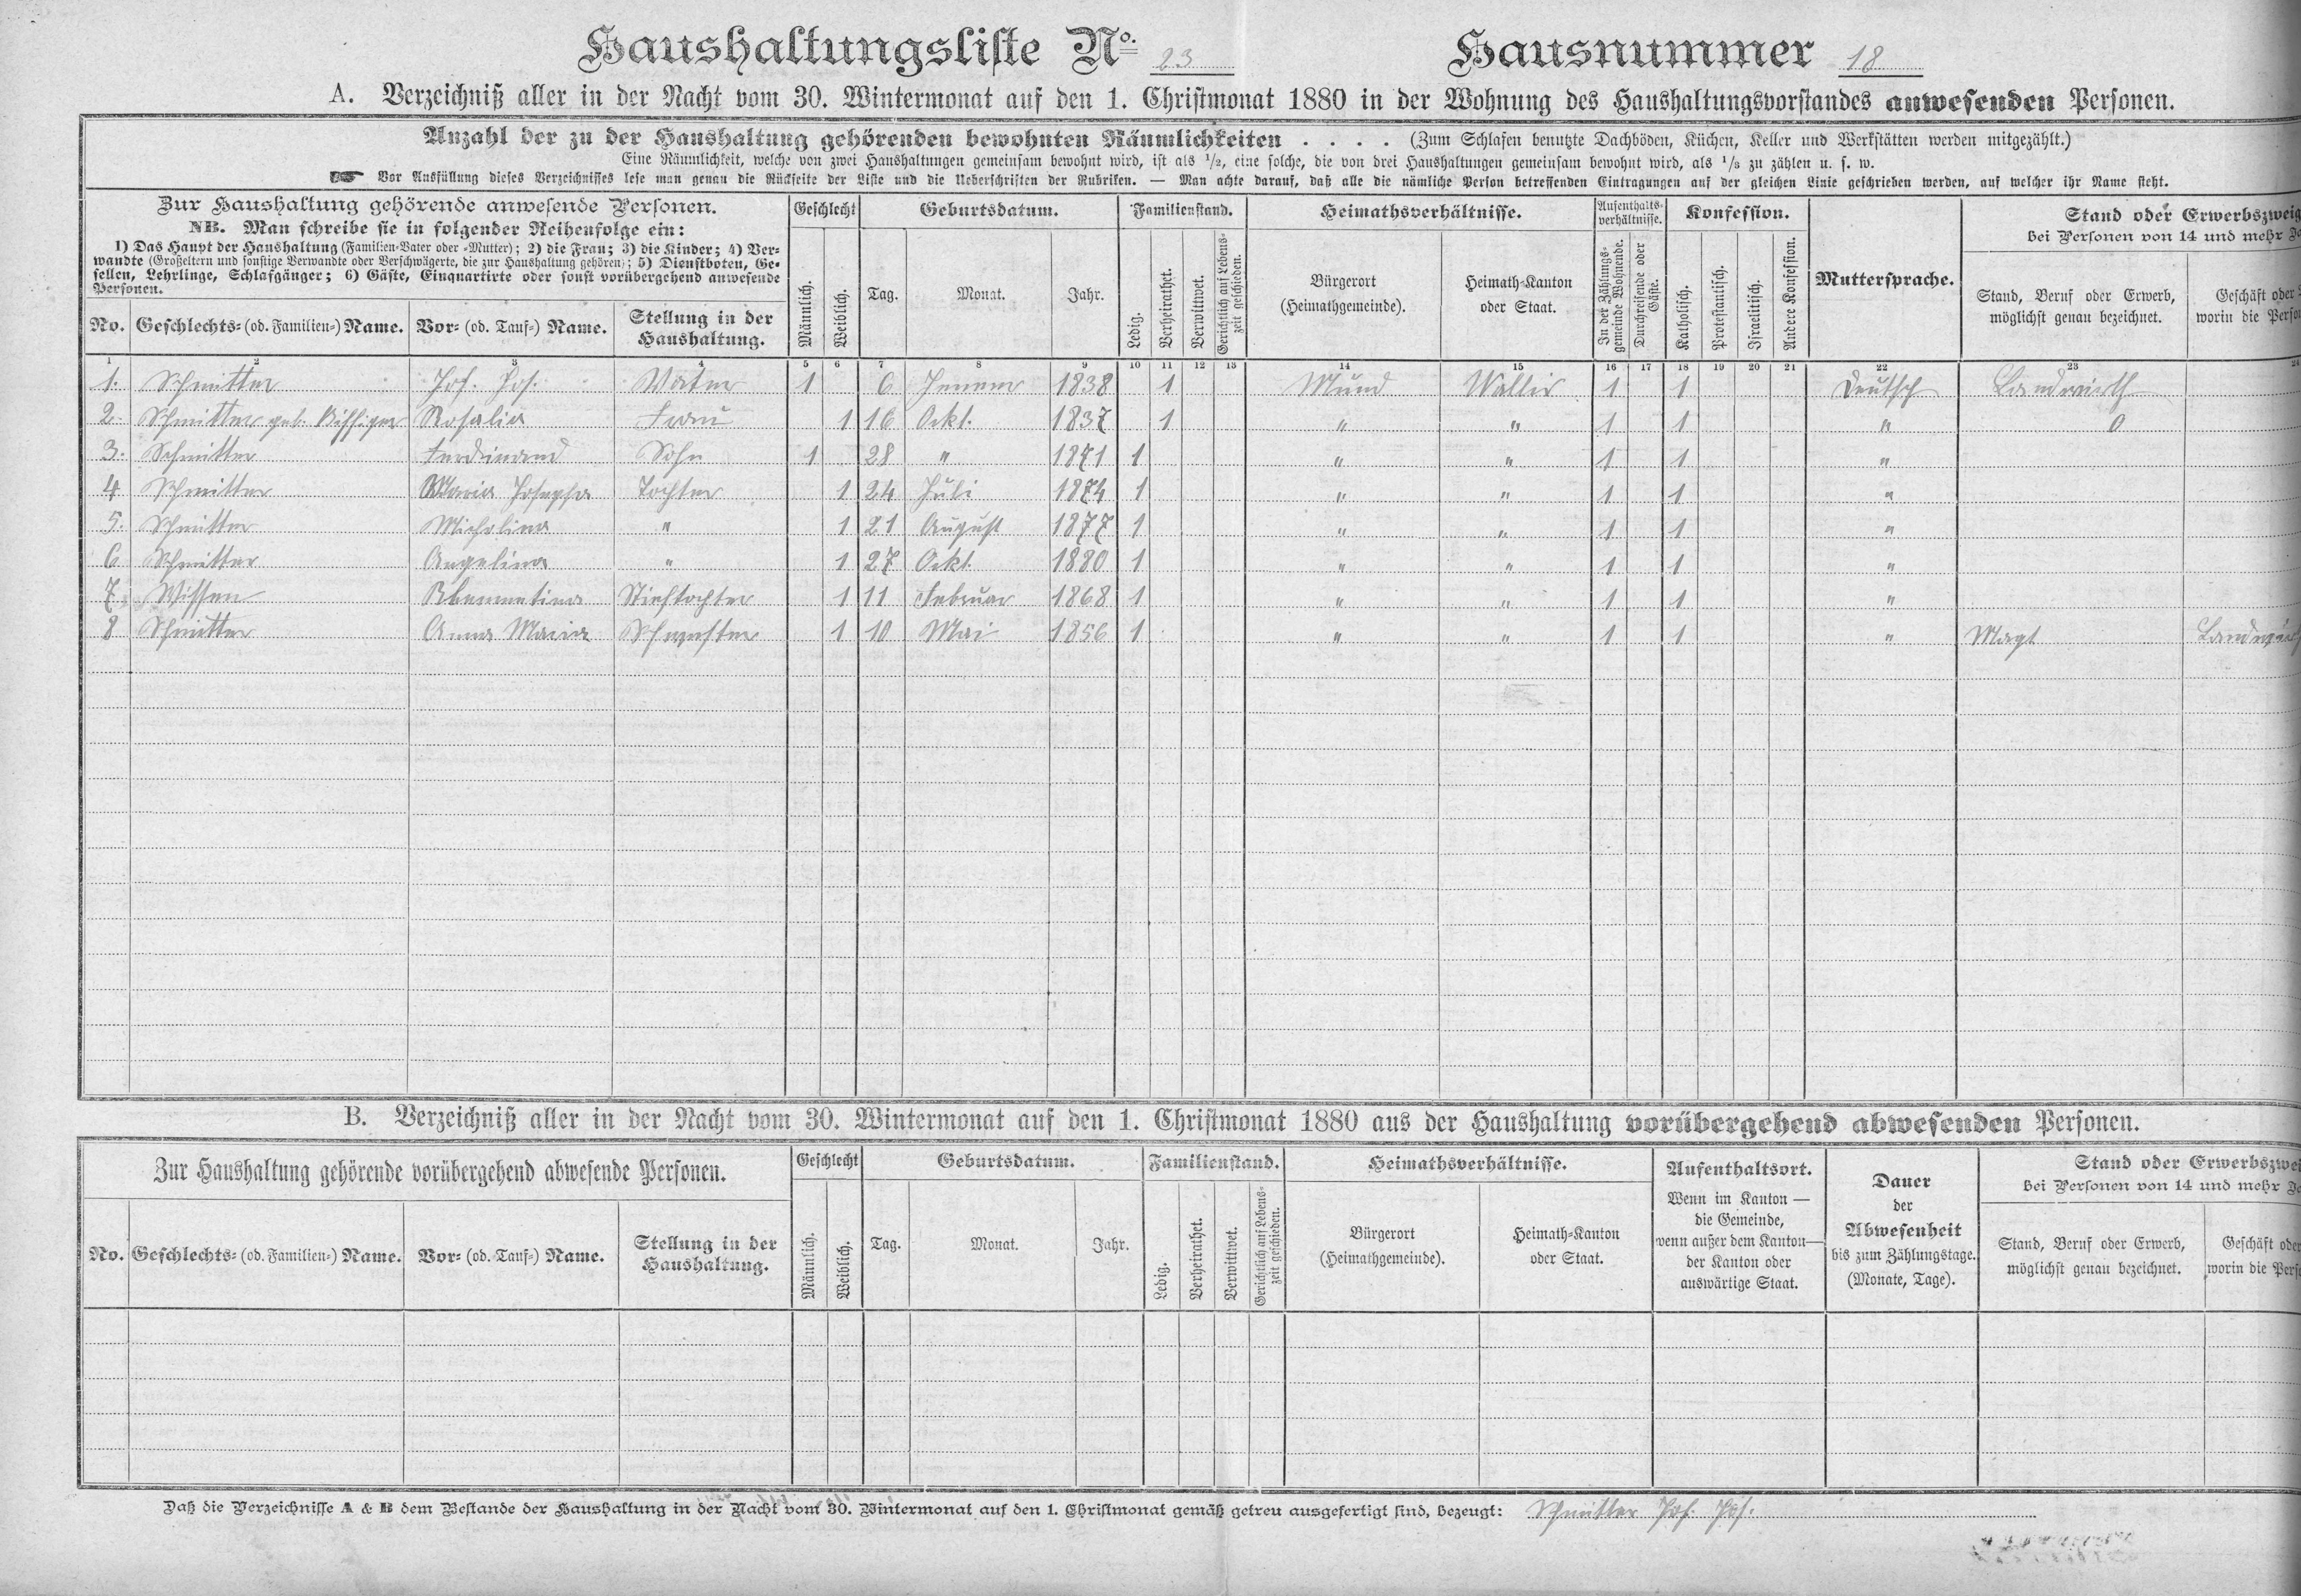 Haushaltungsliste No. 23 Hausnummer 18
A. Verzeichniß aller in der Nacht vom 30. Wintermonat auf den 1. Christmonat 1880 in der Wohnung des Haushaltungsvorstandes anwesenden Personen.
Anzahl der zu der Haushaltung gehörenden bewohnten Räumlichkeiten . . . . (Zum Schlafen benutzte Dachböden, Küchen, Keller und Werkstätten werden mitgezählt.)
Eine Räumlichkeit, welche von zwei Haushaltungen gemeinsam bewohnt wird, ist als 1/2, eine solche, die von drei Haushaltungen gemeinsam bewohnt wird, als 1/3 zu zählen u. s. w.
Vor Ausfüllung dieses Verzeichnisses lese man genau die Rückseite der Liste und die Ueberschriften der Rubriken. — Man achte darauf, daß alle die nämliche Person betreffenden Eintragungen auf der gleichen Linie geschrieben werden, auf welcher ihr Name steht.
Zur Haushaltung gehörende anwesende Personen.
NB. Man schreibe sie in folgender Reihenfolge ein:
1) Das Haupt der Haushaltung (Familien-Vater oder -Mutter); 2) die Frau; 3) die Kinder; 4) Ver-
wandte (Großeltern und sonstige Verwandte oder Verschwägerte, die zur Haushaltung gehören); 5) Dienstboten, Ge-
sellen, Lehrlinge, Schlafgänger; 6) Gäste, Einquartirte oder sonst vorübergehend anwesende
Personen.
No. Geschlechts- (od. Familien-) Name. Vor- (od. Tauf-) Name. Stellung in der
Haushaltung.
Geschlecht
Männlich. Weiblich.
Geburtsdatum.
Tag. Monat. Jahr.
Familienstand.
Ledig. Verheirathet. Verwittwet. Gerichtlich auf Lebens-
zeit geschieden.
Heimathsverhältnisse.
Bürgerort
(Heimathgemeinde).
Heimath-Kanton
oder Staat.
Aufenthalts-
verhältnisse.
In der Zählungs-
gemeinde Wohnende.
Durchreisende oder
Gäste.
Konfession.
Katholisch. Protestantisch. Israelitisch. Andere Konfession.
Muttersprache.
Stand oder Erwerbszweig
bei Personen von 14 und mehr
Stand, Beruf oder Erwerb,
möglichst genau bezeichnet.
Geschäft oder
worin die
1 2 3 4 5 6 7 8 9 10 11 12 13 14 15 16 17 18 19 20 21 22 23
1. Schmitter Jos. Jos. Vater 1 6 Jenner 1838 1 Mund Wallis 1 1 Deutsch Landwirth
2. Schmitter geb. Rosalia Frau 1 16 Okt. 1837 1 " " 1 1 " 0
3. Schmitter Ferdinand Sohn 1 28 " 1871 1 " " 1 1 "
4 Schmitter Maria Josepha Tochter 1 24 Juli 1874 1 " " 1 1 "
5. Schmitter " 1 21 August 1877 1 " " 1 1 "
6 Schmitter Angelina " 1 27 Okt. 1880 1 " " 1 1 "
7 Wissen Stieftochter 1 11 Februar 1868 1 " " 1 1 "
8 Schmitter Anna Maria Schwester 1 10 Mai 1856 1 " " 1 1 " Magt
B. Verzeichniß aller in der Nacht vom 30. Wintermonat auf den 1. Christmonat 1880 aus der Haushaltung vorübergehend abwesenden Personen.
Zur Haushaltung gehörende vorübergehend abwesende Personen.
No. Geschlechts- (od. Familien-) Name. Vor- (od. Tauf-) Name. Stellung in der
Haushaltung.
Geschlecht
Männlich. Weiblich.
Geburtsdatum.
Tag. Monat. Jahr.
Familienstand.
Ledig. Verheirathet. Verwittwet. Gerichtlich auf Lebens-
zeit geschieden.
Heimathsverhältnisse.
Bürgerort
(Heimathgemeinde).
Heimath-Kanton
oder Staat.
Aufenthaltsort.
Wenn im Kanton —
die Gemeinde,
wenn außer dem Kanton—
der Kanton oder
auswärtige Staat.
Dauer
der
Abwesenheit
bis zum Zählungstage.
(Monate, Tage).
Stand oder
bei Personen von 14 und mehr
Stand, Beruf oder Erwerb,
möglichst genau bezeichnet.
Geschäft oder
worin die
Daß die Verzeichnisse A & B dem Bestande der Haushaltung in der Nacht vom 30. Wintermonat auf den 1. Christmonat gemäß getreu ausgefertigt sind, bezeugt: Schmitter Jos. Jos.